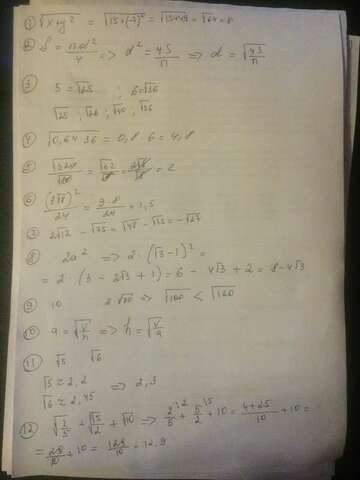 ① √x+y² = √15+(-7)² = √15+49 = √64 = 8
② S = πd²/4 => d² = 4S/π => d = √4S/π
③ 5 = √25 ; 6 = √36
√25 ; √26 ; √30 ; √36
④ √0,64·36 = 0,8·6 = 4,8
⑤ = 2
⑥ (3√8)²/24 = 9·8/24 = 1,5
⑦ 2√12 - √75 = √48 - √75 = -√27
⑧ 2a² => 2·(√3-1)² =
= 2·(3-2√3+1) = 6-4√3+2 = 8-4√3
⑨ 10 2√30 => √100 < √120
⑩ a = √V/h => h = √V/a
⑪ √5 √6
√5 ≈ 2,2 => 2,3
√6 ≈ 2,45
⑫ √2/5 + √5/2 + √10 => 2/5 + 5/2 + 10 = 4+25/10 + 10 =
= 29/10 + 10 = 129/10 = 12,9